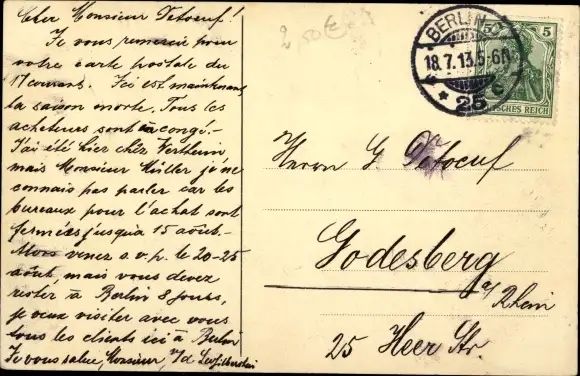 Cher Monsieur Detoeuf!
Je vous remercie pour
votre carte postale du
17 courant. Ici est maintenant
la saison morte. Tous les
acheteurs sont à congé.-
J'ai été hier chéz Wertheim
mais Monsieur Müller je ne
connais pas parler car les
bureaux pour l'achat sont
fermées jusqu'à 15 août.-
Alors venez s.v.p. le 20-25
août, mais vous devez
rester à Berlin 8 jours,
je veux visiter avec vous
tous les clients ici à Berlin
Je vous salue, Monsieur,
2,50€
BERLIN
18.7.13. 5-6N
* 25
5 5
DEUTSCHES REICH
Herrn G. Detoeuf
Godesberg
a/Rhein
25 Heer Str.